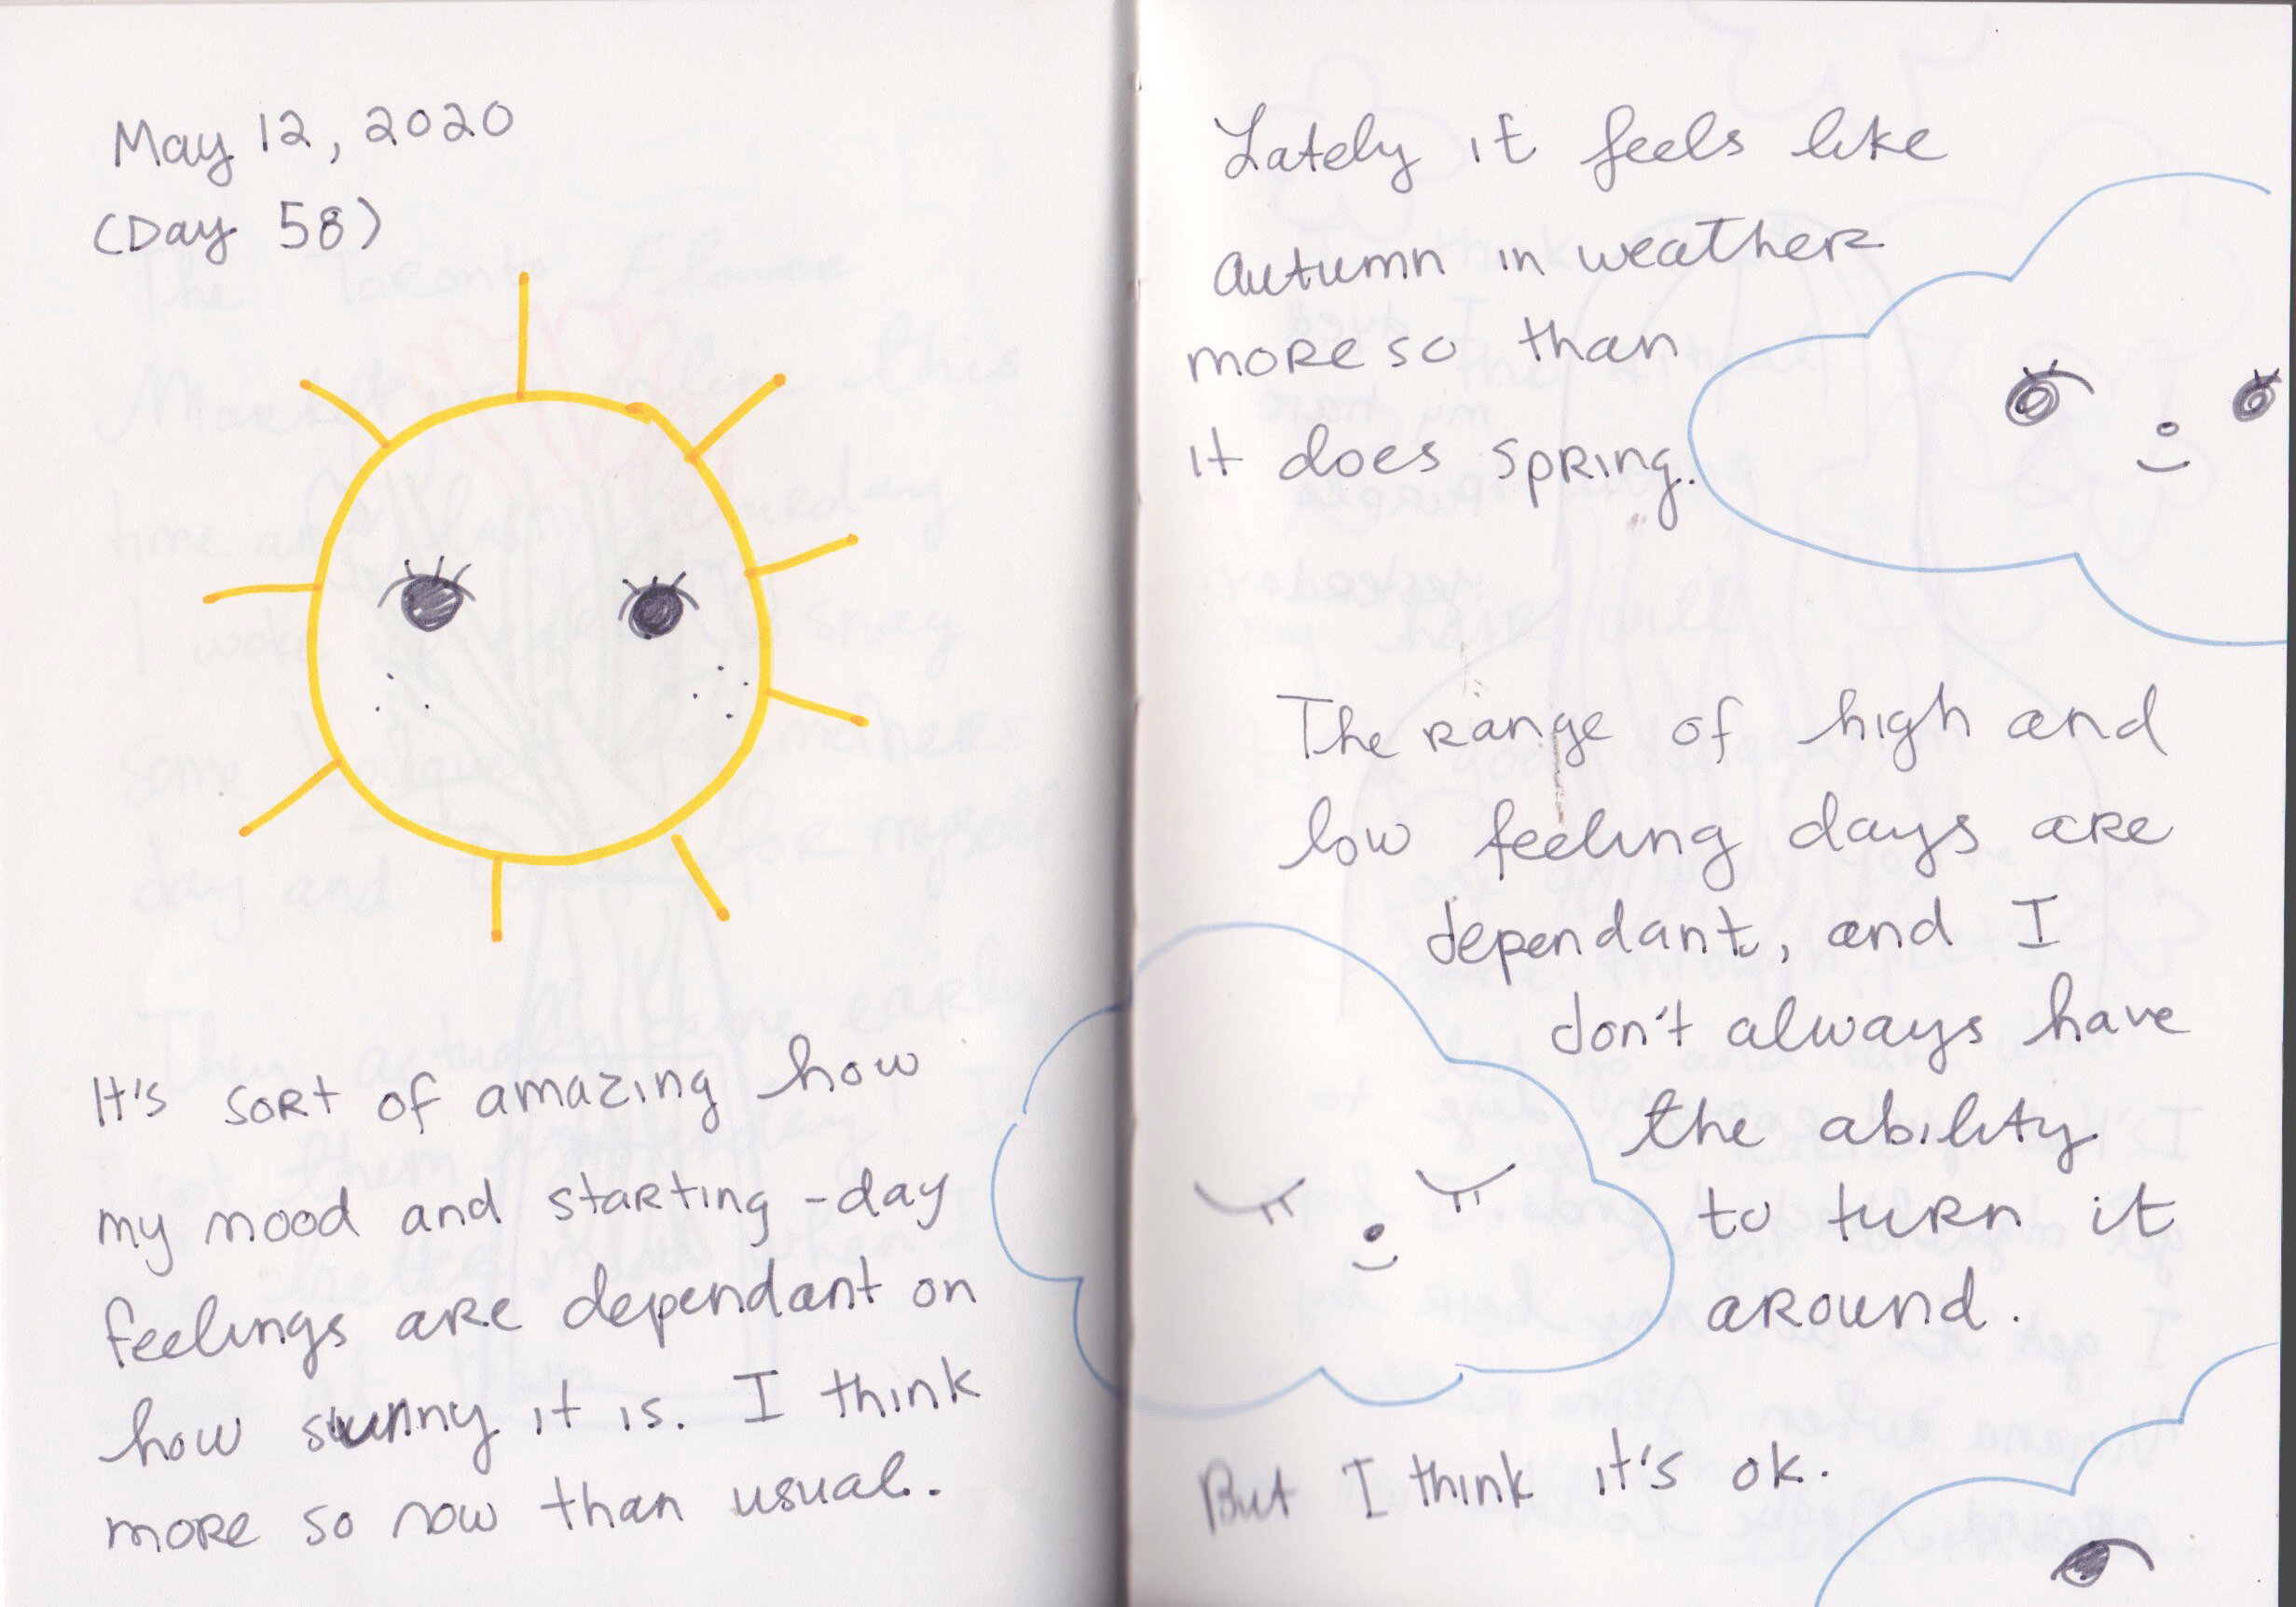 May 12, 2020
(Day 58)
It's sort of amazing how
my mood and starting-day
feelings are dependant on
how sunny it is. I think
more so now than usual.
Lately it feels like
autumn in weather
more so than
it does spring.
The range of high and
low feeling days are
dependant, and I
don't always have
the ability
to turn it
around.
But I think it's ok.